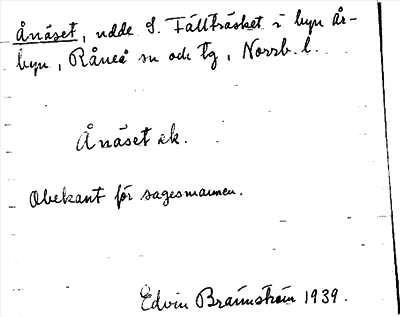 Ånäset, udde S. Fällträsket i byn År-
byn, Råneå sn och tg, Norrb. l.
Ånäset ek.
Obekant för sagesmannen.
Edvin Brännström 1939.